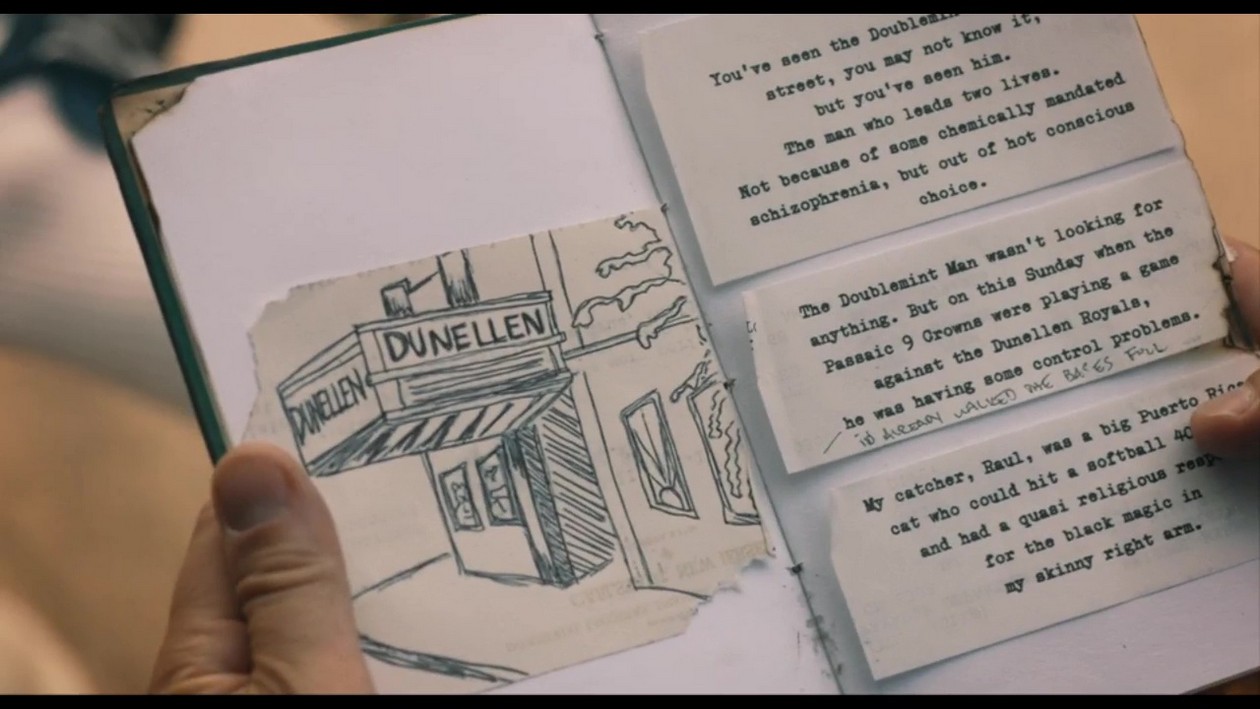 DUNELLEN
DUNELLEN
You've seen the Doublemint
street, you may not know it,
but you've seen him.
The man who leads two lives.
Not because of some chemically mandated
schizophrenia, but out of hot conscious
choice.
The Doublemint Man wasn't looking for
anything. But on this Sunday when the
Passaic 9 Crowns were playing a game
against the Dunellen Royals,
he was having some control problems.
I'D ALREADY WALKED THE BASES FULL
My catcher, Raul, was a big Puerto
cat who could hit a softball
and had a quasi religious
for the black magic in
my skinny right arm.